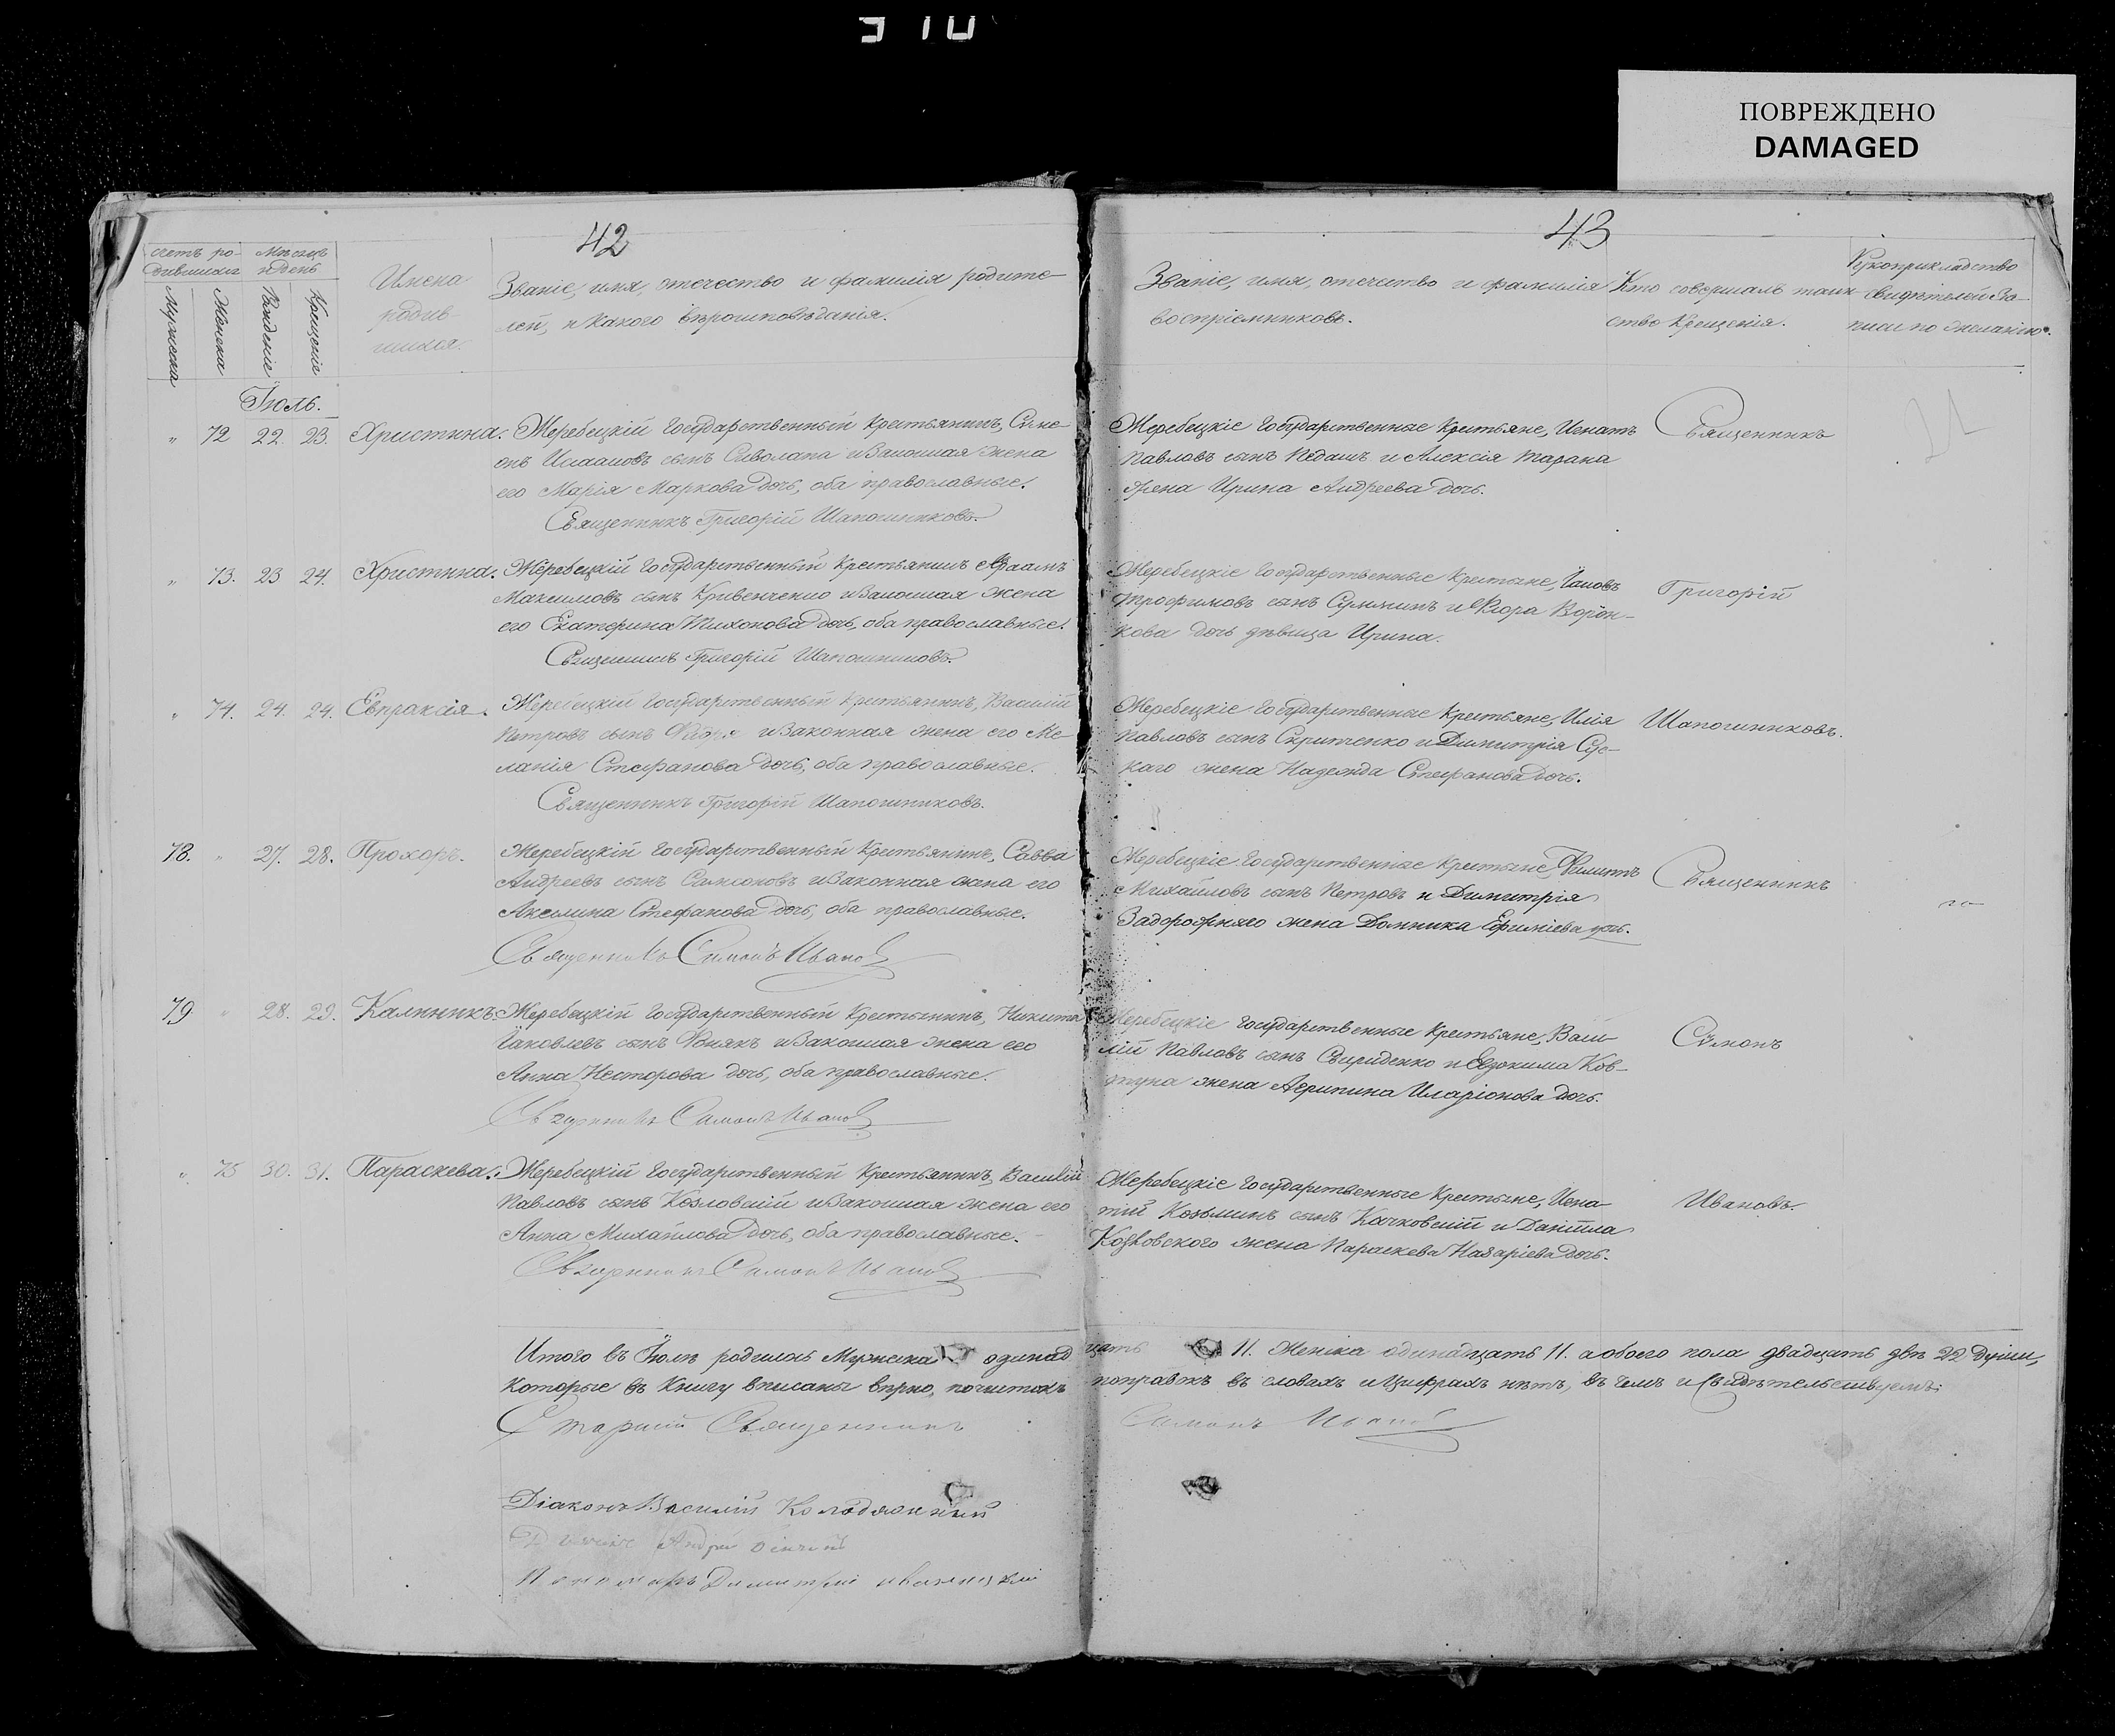 310
ПОВРЕЖДЕНО
DAMAGED
42
Счетъ ро-
дившихся
Мѣсяцъ
и день
Мужеска
Женска
Рожденіе
Крещенія
Имена
родив-
шихся.
Званіе, имя, отечество и фамилія родите-
лей, и какого вѣроисповѣданія.
Іюль.
" 72 22. 23. Христина. Жеребецкій государственный крестьянинъ, Симе-
онъ сынъ Сиволапа и законная жена
его Марія Маркова дочь, оба православные.
Священникъ Григорій Шапошниковъ.
" 73. 23 24. Христина. Жеребецкій государственный крестьянинъ Авраамъ
Максимовъ сынъ Кривенченко и законная жена
его Екатерина Тихонова дочь, оба православные.
Священникъ Григорій Шапошниковъ.
" 74. 24. 24. Евпраксія. Жеребецкій государственный крестьянинъ, Василій
Петровъ сынъ и законная жена его Ме-
ланія Стефанова дочь, оба православные.
Священникъ Григорій Шапошниковъ.
78. " 27. 28. Прохоръ. Жеребецкій государственный крестьянинъ, Савва
Андреевъ сынъ Самсоновъ и законная жена его
Акилина Стефанова дочь, оба православные.
Священникъ Симонъ Ивановъ
79 " 28. 29. Калиникъ. Жеребецкій государственный крестьянинъ, Никита
Іаковлевъ сынъ и законная жена его
Анна Несторова дочь, оба православные.
Священникъ Симонъ Ивановъ
" 75 30. 31. Параскева. Жеребецкій государственный крестьянинъ, Василій
Павловъ сынъ Козловскій и законная жена его
Анна Михайлова дочь, оба православные.
Священникъ Симонъ Ивановъ
Итого въ Іюлѣ родилось Мужеска одинад
которые въ книгу вписаны вѣрно, почистокъ
Старшій Священникъ
Діаконъ Василій Колодяжный
Андрей
Пономарь Димитрій
43
Званіе, имя, отечество и фамилія
воспріемниковъ.
Кто совершалъ таин-
ство крещенія.
Рукоприкладство
свидѣтелей за-
писи по желанію.
Жеребецкіе государственные крестьяне, Игнатъ
Павловъ сынъ Педашъ и Алексія Тарана
жена Ирина Андреева дочь.
Священникъ
Жеребецкіе государственные крестьяне, Іаковъ
Трофимовъ сынъ и Ѳеодора Ворон-
кова дочь дѣвица Ирина.
Григорій
Жеребецкіе государственные крестьяне, Илія
Павловъ сынъ Скрипченко и Димитрія Сус-
каго жена Надежда Стефанова дочь.
Шапошниковъ.
Жеребецкіе государственные крестьяне, Филиппъ
Михайловъ сынъ Петровъ и Димитрія
Задорожняго жена Домника Ефиміева дочь.
Священникъ
Жеребецкіе государственные крестьяне, Васи-
лій Павловъ сынъ Свириденко и Евдокима Ков-
туна жена Агрипина Иларіонова дочь.
Сѵмонъ
Жеребецкіе государственные крестьяне, Игна-
тій Козьминъ сынъ Качковскій и Даніила
Козловского жена Параскева Назаріева дочь.
Ивановъ.
цать 11. Женска одинадцать 11. а обоего пола двадцать двѣ 22 души,
поправокъ въ словахъ и цифрахъ нѣтъ, въ чемъ и свидѣтельствуемъ:
Симонъ Ивановъ